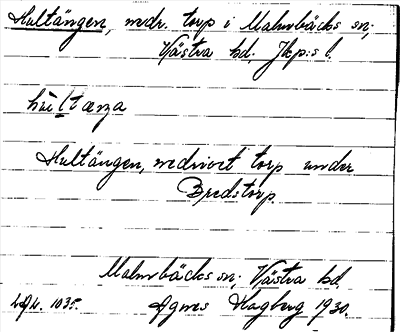 Hultängen, nedr. torp i Malmbäcks sn;
Västra hd. Jkp:s l.
hùltæŋa
Hultängen, nedrivet torp under
Bredstorp.
Malmbäcks sn; Västra hd.
Agnes Hagberg 1930.